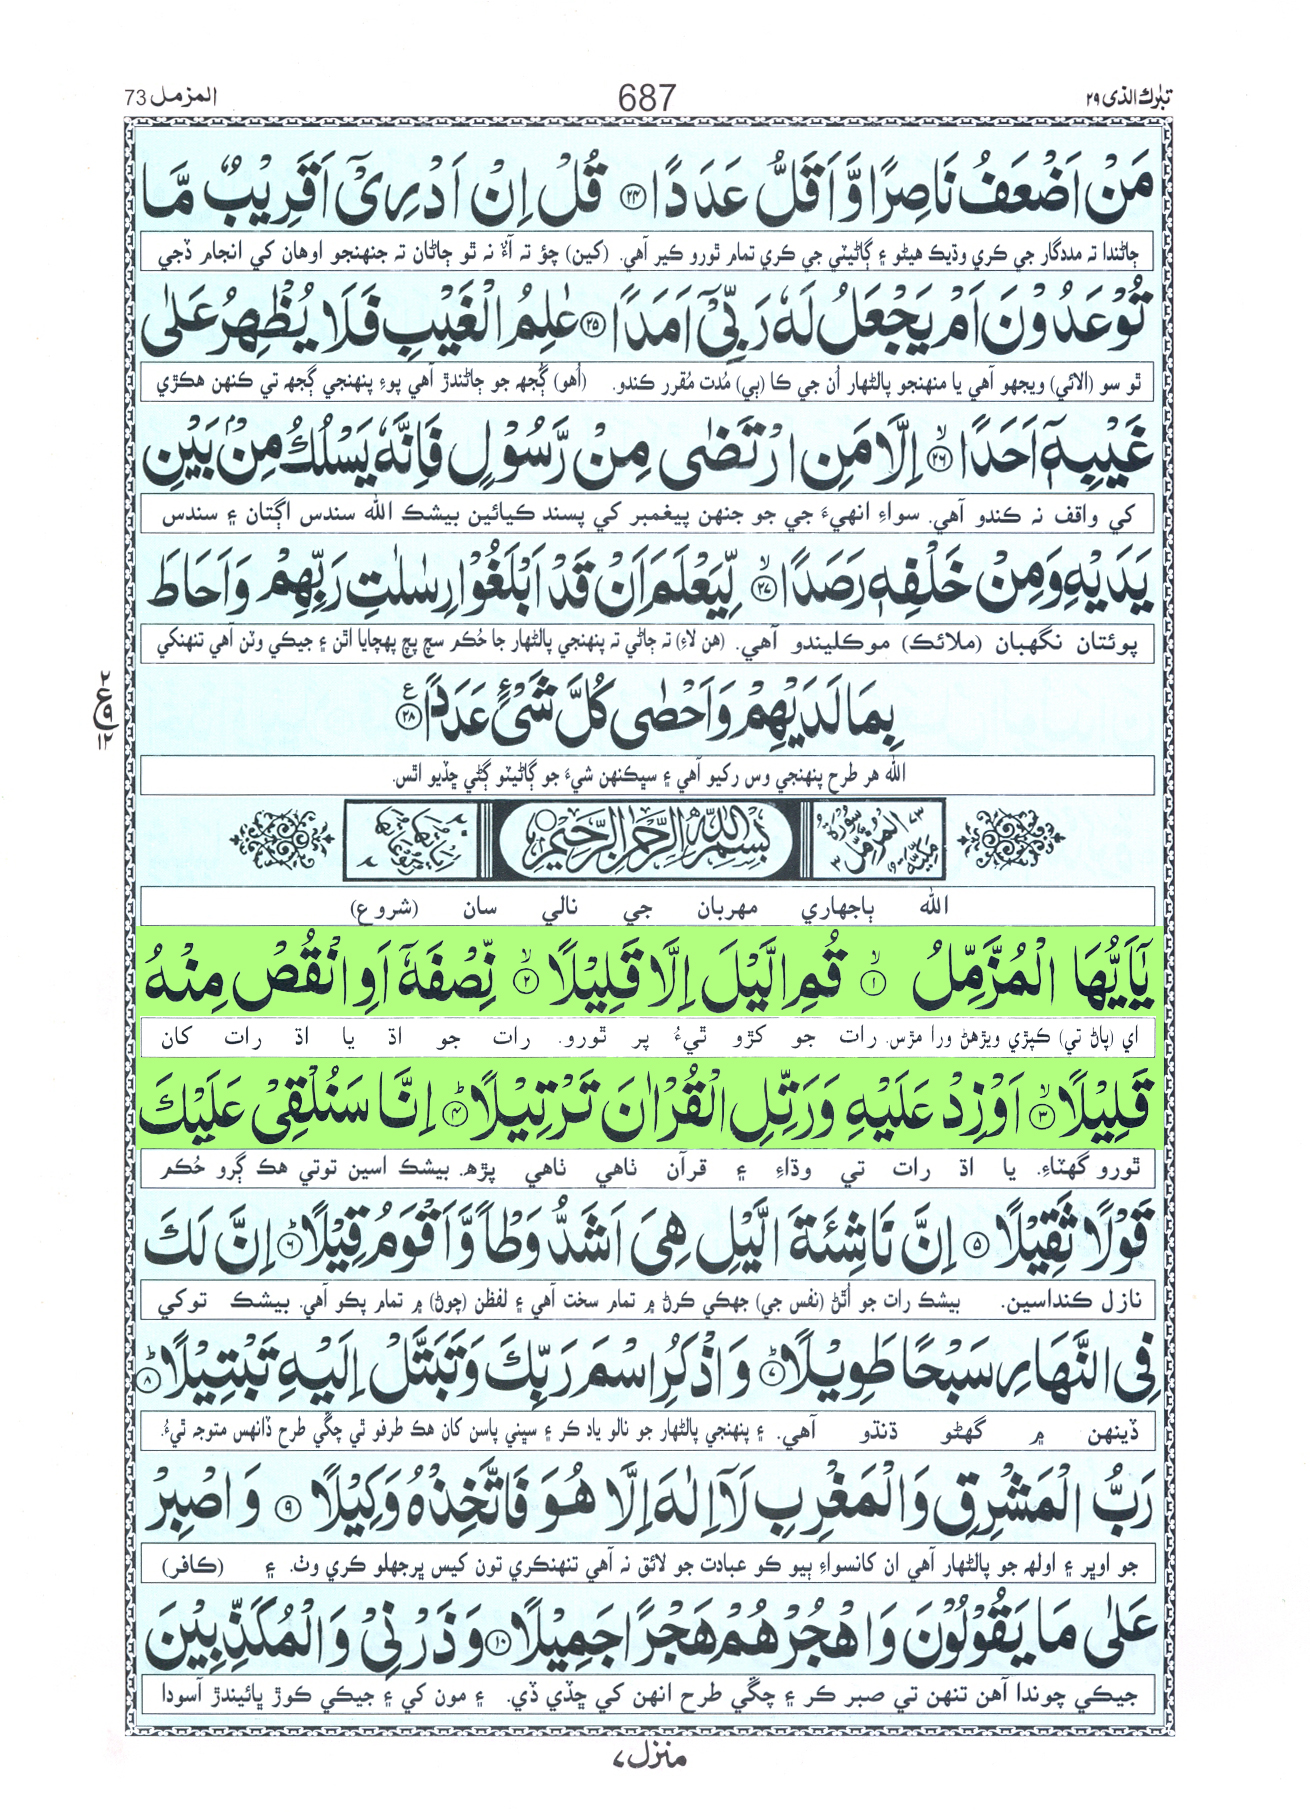 تبٰرك الذى ٢٩
687
المزمل 73
مَنْ اَضْعَفُ نَاصِرًا وَّاَقَلُّ عَدَدًا ۝٢٤ قُلْ اِنْ اَدْرِىْٓ اَقَرِيْبٌ مَّا
ڄاڻندا تہ مددگار جي ڪري وڌيڪ هيڻو ۽ ڳاڻيٽي جي ڪري تمام ٿورو ڪير آهي. (کين) چؤ تہ آءٌ نہ ٿو ڄاڻان تہ جنھنجو اوهان کي انجام ڏجي
تُوْعَدُوْنَ اَمْ يَجْعَلُ لَهٗ رَبِّىْٓ اَمَدًا ۝٢٥ عٰلِمُ الْغَيْبِ فَلَا يُظْهِرُ عَلٰى
ٿو سو (الائي) ويجھو آهي يا منھنجو پالڻھار اُن جي ڪا (ٻي) مُدت مُقرر ڪندو. (اُهو) ڳُجھہ جو ڄاڻندڙ آهي پوءِ پنھنجي ڳجھہ تي ڪنھن هڪڙي
غَيْبِهٖٓ اَحَدًا ۙ۝٢٦ اِلَّا مَنِ ارْتَضٰى مِنْ رَّسُوْلٍ فَاِنَّهٗ يَسْلُكُ مِنْۢ بَيْنِ
کي واقف نہ ڪندو آهي. سواءِ انھيءَ جي جو جنھن پيغمبر کي پسند ڪيائين بيشڪ الله سندس اڳتان ۽ سندس
يَدَيْهِ وَمِنْ خَلْفِهٖ رَصَدًا ۙ۝٢٧ لِّيَعْلَمَ اَنْ قَدْ اَبْلَغُوْا رِسٰلٰتِ رَبِّهِمْ وَاَحَاطَ
پوئتان نگهبان (ملائڪ) موڪليندو آهي. (هن لاءِ) تہ ڄاڻي تہ پنھنجي پالڻھار جا حُڪم سچ پچ پھچايا اٿن ۽ جيڪي وٽن آهي تنھنکي
بِمَا لَدَيْهِمْ وَاَحْصٰى كُلَّ شَىْءٍ عَدَدًا ۝٢٨ ع
٢ ع ٩ ١٢
الله هر طرح پنھنجي وس رکيو آهي ۽ سڀڪنھن شيءِ جو ڳاڻيٽو ڳڻي ڇڏيو اٿس.
٧٣ سُوْرَةُ الْمُزَّمِّلِ مَكِّيَّةٌ ٣
بِسْمِ اللّٰهِ الرَّحْمٰنِ الرَّحِيْمِ
اٰيَاتُهَا ٢٠ رُكُوْعَاتُهَا ٢
الله ٻاجھاري مھربان جي نالي سان (شروع)
يٰٓاَيُّهَا الْمُزَّمِّلُ ۙ۝١ قُمِ الَّيْلَ اِلَّا قَلِيْلًا ۙ۝٢ نِّصْفَهٗٓ اَوِ انْقُصْ مِنْهُ
اي (پاڻ تي) ڪپڙي ويڙھڻ ورا مڙس. رات جو کڙو ٿيءُ پر ٿورو. رات جو اڌ يا اڌ رات کان
قَلِيْلًا ۙ۝٣ اَوْ زِدْ عَلَيْهِ وَرَتِّلِ الْقُرْاٰنَ تَرْتِيْلًا ؕ۝٤ اِنَّا سَنُلْقِىْ عَلَيْكَ
ٿورو گھٽاءِ. يا اڌ رات تي وڌاءِ ۽ قرآن ٺاهي ٺاهي پڙھہ. بيشڪ اسين توتي هڪ ڳرو حُڪم
قَوْلًا ثَقِيْلًا ۝٥ اِنَّ نَاشِئَةَ الَّيْلِ هِىَ اَشَدُّ وَطْاً وَّاَقْوَمُ قِيْلًا ؕ۝٦ اِنَّ لَكَ
نازل ڪنداسين. بيشڪ رات جو اُٿڻ (نفس جي) جھڪي ڪرڻ ۾ تمام سخت آهي ۽ لفظن (چوڻ) ۾ تمام پڪو آهي. بيشڪ توکي
فِى النَّهَارِ سَبْحًا طَوِيْلًا ؕ۝٧ وَاذْكُرِ اسْمَ رَبِّكَ وَتَبَتَّلْ اِلَيْهِ تَبْتِيْلًا ؕ۝٨
ڏينھن ۾ گھڻو ڌنڌو آهي. ۽ پنھنجي پالڻھار جو نالو ياد ڪر ۽ سڀني پاسن کان هڪ طرفو ٿي چڱي طرح ڏانھس متوجہ ٿيءُ.
رَبُّ الْمَشْرِقِ وَالْمَغْرِبِ لَآ اِلٰهَ اِلَّا هُوَ فَاتَّخِذْهُ وَكِيْلًا ۝٩ وَاصْبِرْ
جو اوڀر ۽ اولھہ جو پالڻھار آهي ان کانسواءِ ٻيو ڪو عبادت جو لائق نہ آهي تنھنڪري تون کيس ڀرجھلو ڪري وٺ. ۽ (ڪافر)
عَلٰى مَا يَقُوْلُوْنَ وَاهْجُرْهُمْ هَجْرًا جَمِيْلًا ۝١٠ وَذَرْنِىْ وَالْمُكَذِّبِيْنَ
جيڪي چوندا آهن تنھن تي صبر ڪر ۽ چڱي طرح انھن کي ڇڏي ڏي. ۽ مون کي ۽ جيڪي ڪوڙ ڀائيندڙ آسودا
منزل ٧